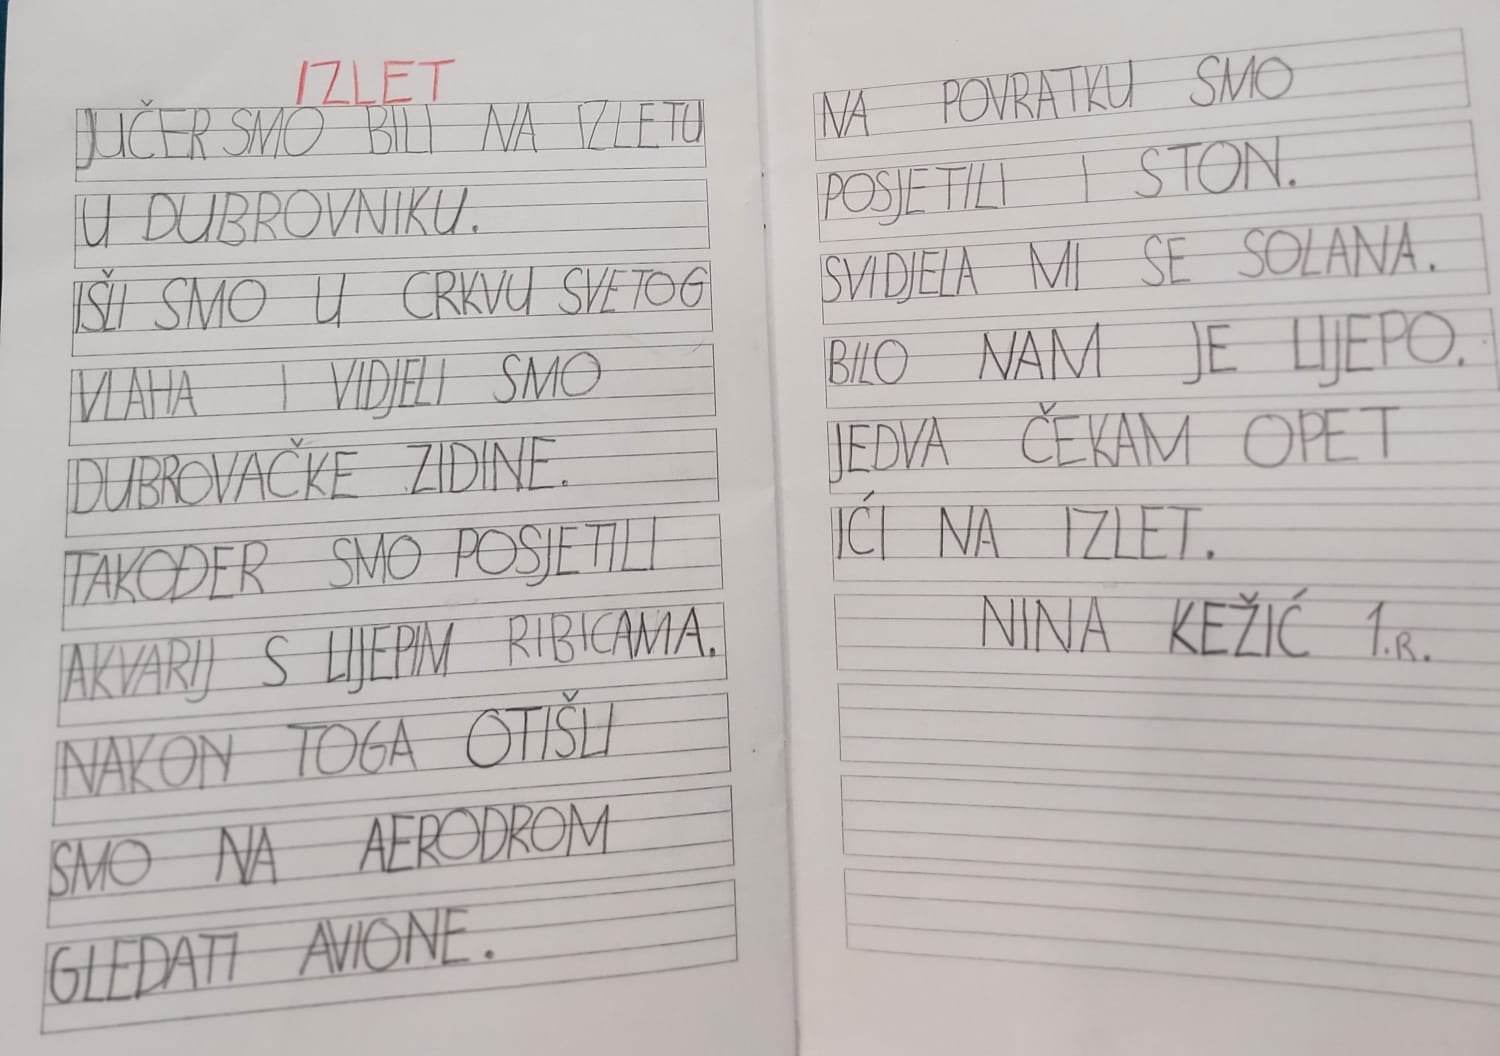 IZLET
JUČER SMO BILI NA IZLETU
U DUBROVNIKU.
IŠLI SMO U CRKVU SVETOG
VLAHA I VIDJELI SMO
DUBROVAČKE ZIDINE.
TAKOĐER SMO POSJETILI
AKVARIJ S LIJEPIM RIBICAMA.
NAKON TOGA OTIŠLI
SMO NA AERODROM
GLEDATI AVIONE.
NA POVRATKU SMO
POSJETILI I STON.
SVIDJELA MI SE SOLANA.
BILO NAM JE LIJEPO.
JEDVA ČEKAM OPET
IĆI NA IZLET.
NINA KEŽIĆ 1.R.